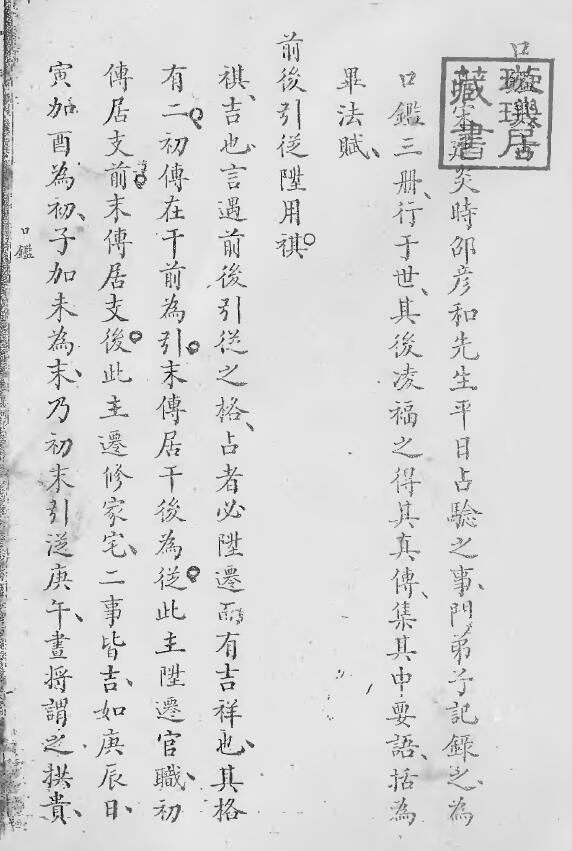 口鑑
宋建炎時邵彦和先生平日占驗之事、門弟子記錄之、為
口鑑三册、行于世、其後凌福之得其真傳、集其中要語、括為
畢法賦、
前後引從陞用祺。
祺、吉也、言遇前後引從之格、占者必陞遷而有吉祥也、其格
有二。初傳在干前為引。末傳居干後為從。此主陞遷官職、初
傳居支前。末傳居支後。此主遷修家宅、二事皆吉、如庚辰日、
寅加酉為初、子加未為末、乃初末引從庚午、晝將謂之拱貴、
口鑑
居
藏書